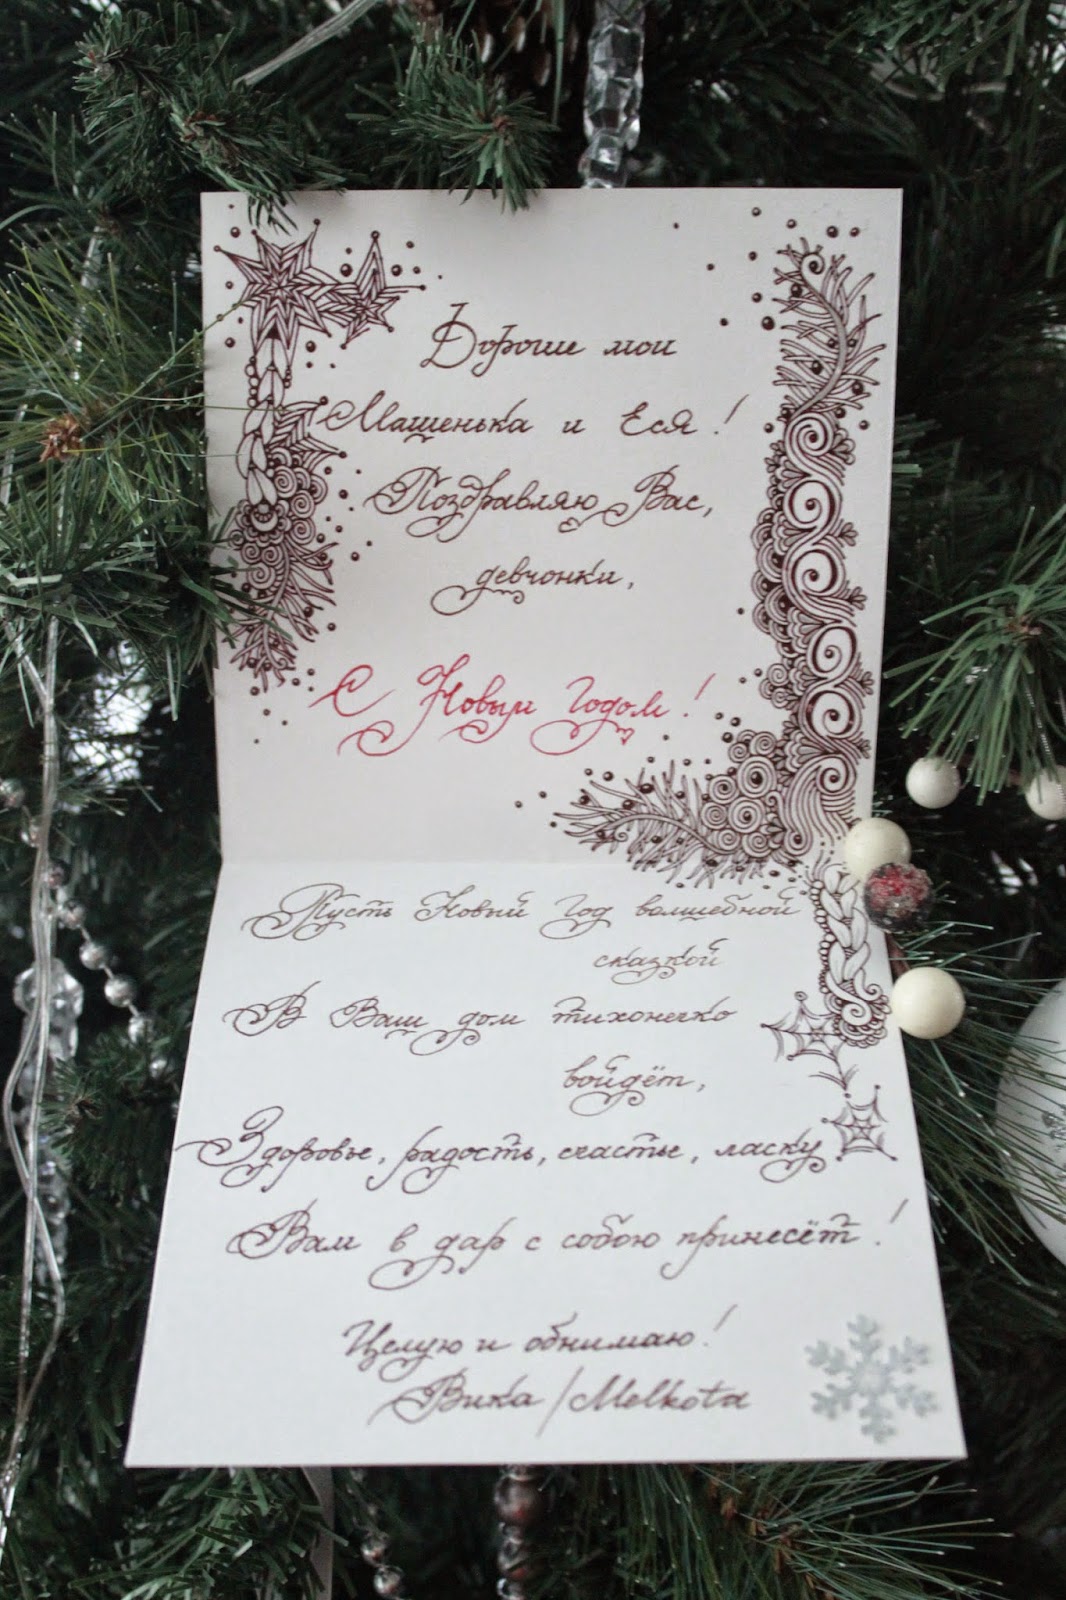 Дорогие мои
Машенька и Еся!
Поздравляю Вас,
девчонки,
С Новым годом!
Пусть Новый Год волшебной
сказкой
В Ваш дом тихонечко
войдёт,
Здоровье, радость, счастье, ласку
Вам в дар с собою принесёт!
Целую и обнимаю!
Вика/Melkota